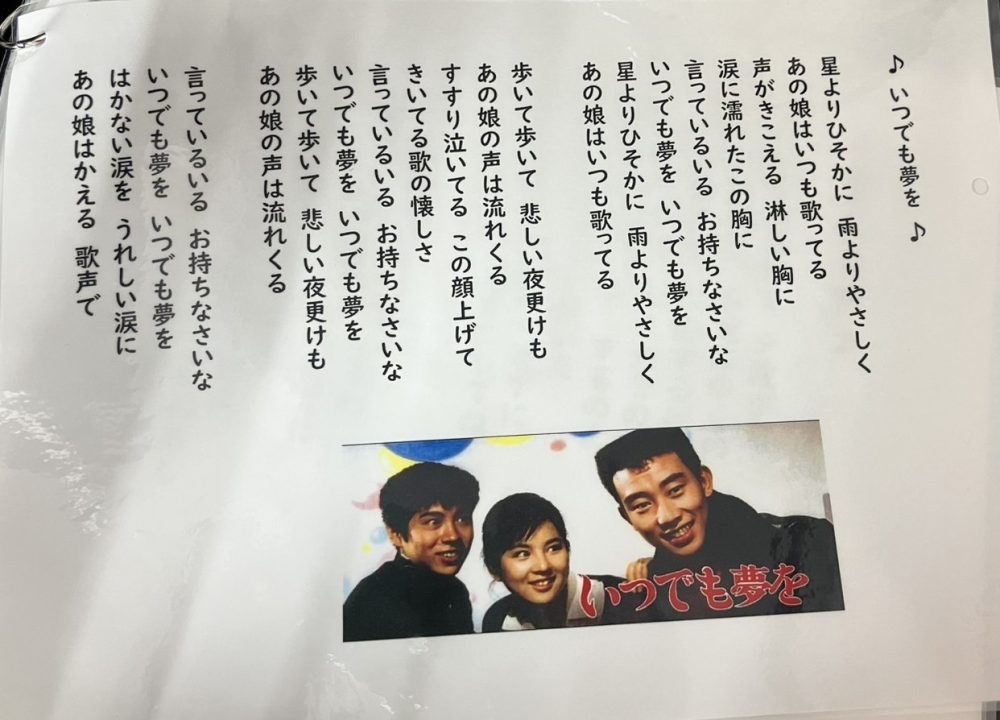 ♪ いつでも夢を ♪
星よりひそかに 雨よりやさしく
あの娘はいつも歌ってる
声がきこえる 淋しい胸に
涙に濡れたこの胸に
言っているいる お持ちなさいな
いつでも夢を いつでも夢を
星よりひそかに 雨よりやさしく
あの娘はいつも歌ってる
歩いて歩いて 悲しい夜更けも
あの娘の声は流れくる
すすり泣いてる この顔上げて
きいてる歌の懐しさ
言っているいる お持ちなさいな
いつでも夢を いつでも夢を
歩いて歩いて 悲しい夜更けも
あの娘の声は流れくる
言っているいる お持ちなさいな
いつでも夢を いつでも夢を
はかない涙を うれしい涙に
あの娘はかえる 歌声で
いつでも夢を